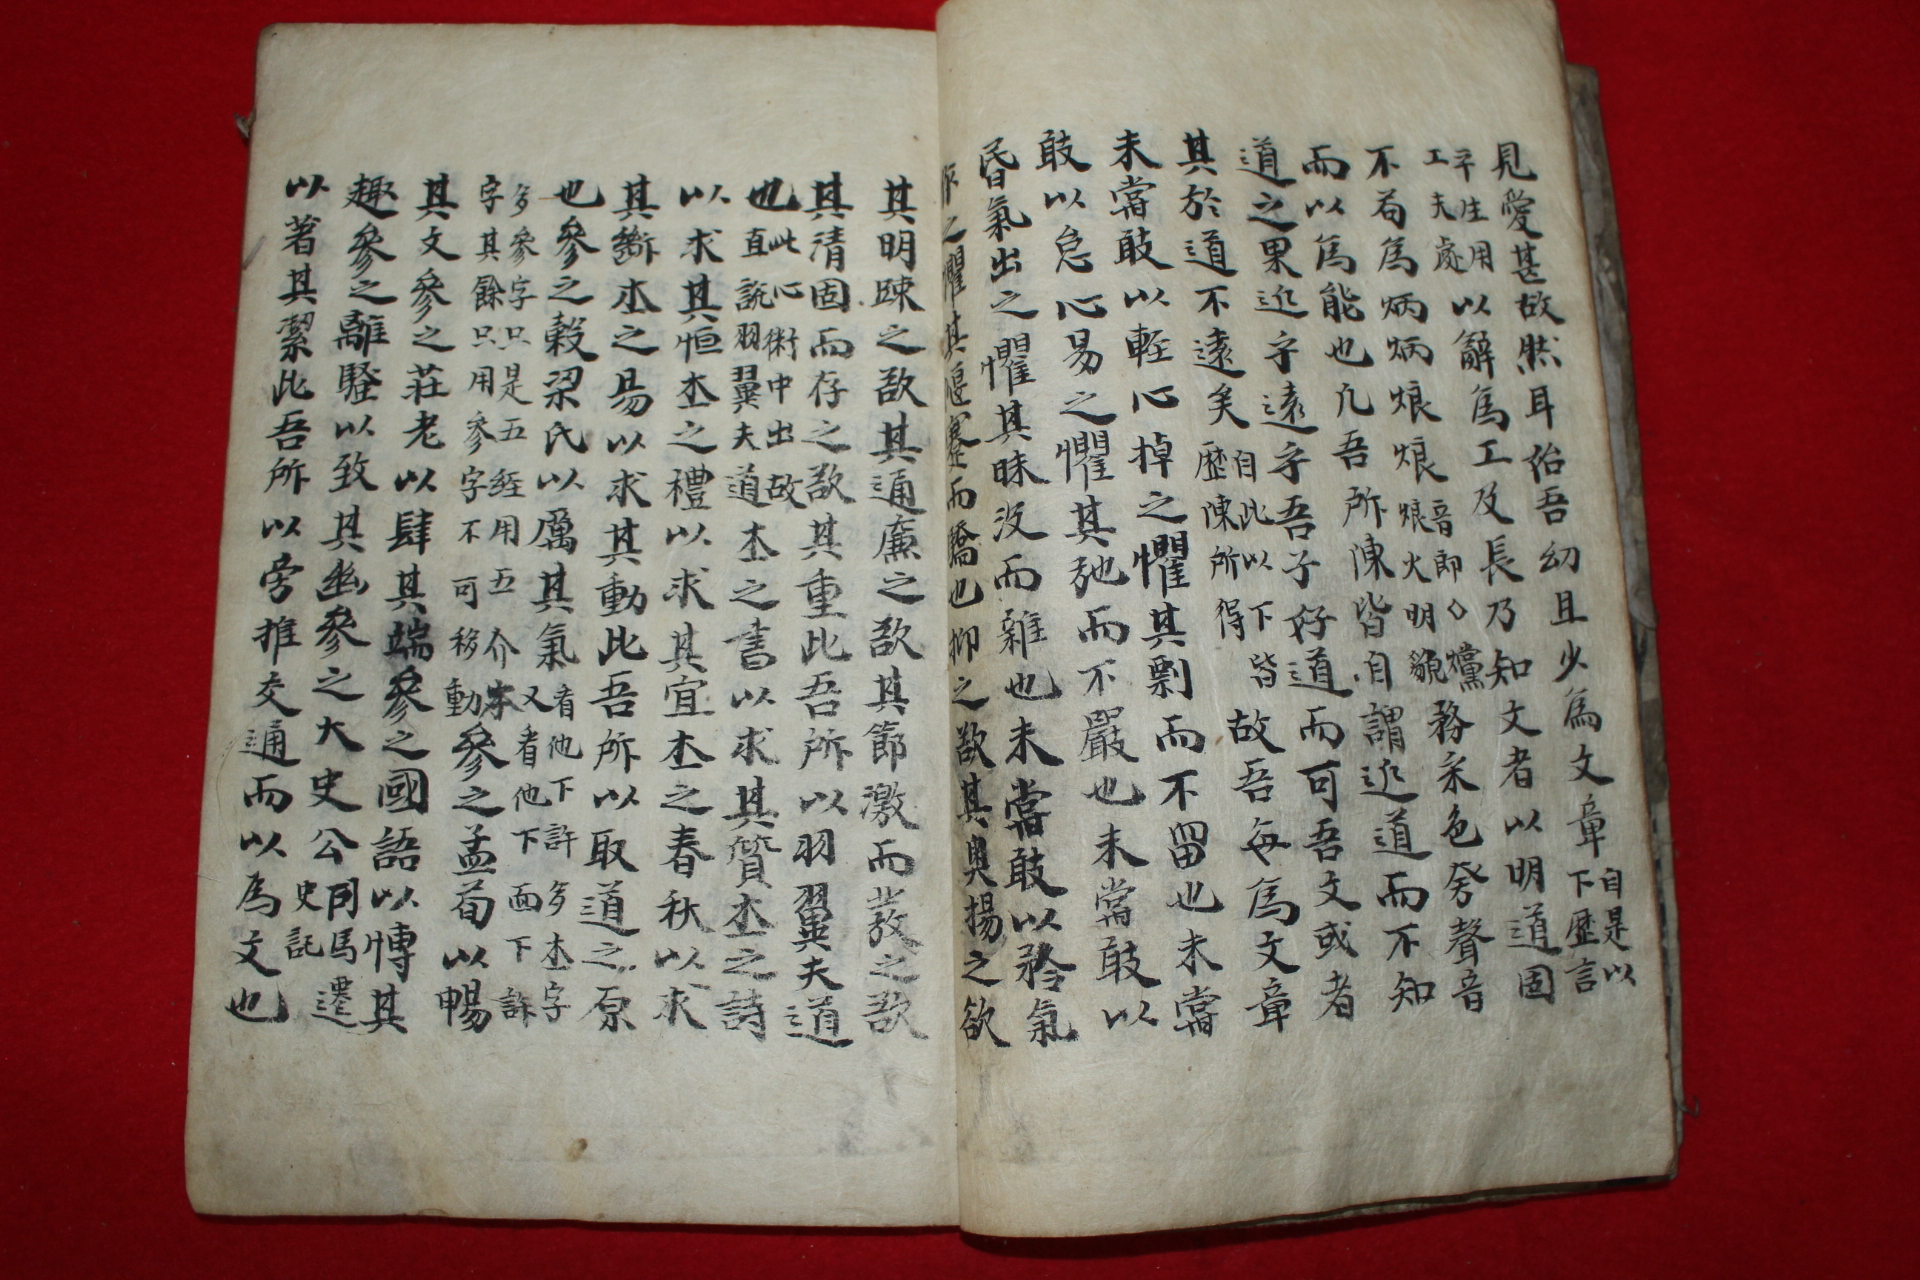 見愛甚故然耳始吾幼且少爲文章自是以下歷言
平生用工夫處以辭爲工及長乃知文者以明道固
不苟爲炳炳烺烺音郎◇爣烺火明貌務釆色夸聲音
而以爲能也凡吾所陳皆自謂近道而不知
道之果近乎遠乎吾子好道而可吾文或者
其於道不遠矣自此以下皆歷陳所得故吾每爲文章
未嘗敢以輕心掉之懼其剽而不留也未嘗
敢以怠心易之懼其弛而不嚴也未嘗敢以
昏氣出之懼其昧沒而雜也未嘗敢以矜氣
作之懼其偃蹇而驕也抑之欲其奧揚之欲
其明疎之欲其通廉之欲其節激而發之欲
其清固而存之欲其重此吾所以羽翼夫道
也此心術中出故直說羽翼夫道本之書以求其質本之詩
以求其恒本之禮以求其宜本之春秋以求
其斷本之易以求其動此吾所以取道之原
也參之穀梁氏以厲其氣者他下許多本字又看他下面下許
多參字只是五經用五介本字其餘只用參字不可移動參之孟荀以暢
其文參之莊老以肆其端參之國語以博其
趣參之離騷以致其幽參之大史公司馬遷史記
以著其潔此吾所以旁推交通而以爲文也